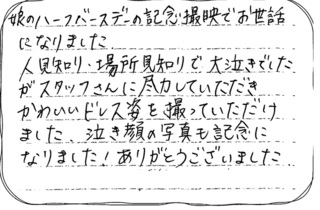 娘のハーフバースデーの記念撮映でお世話
になりました
人見知り・場所見知りで大泣きでした
がスタッフさんに尽力していただき
かわいいドレス姿を撮っていただけ
ました、泣き顔の写真も記念に
なりました！ありがとうございました